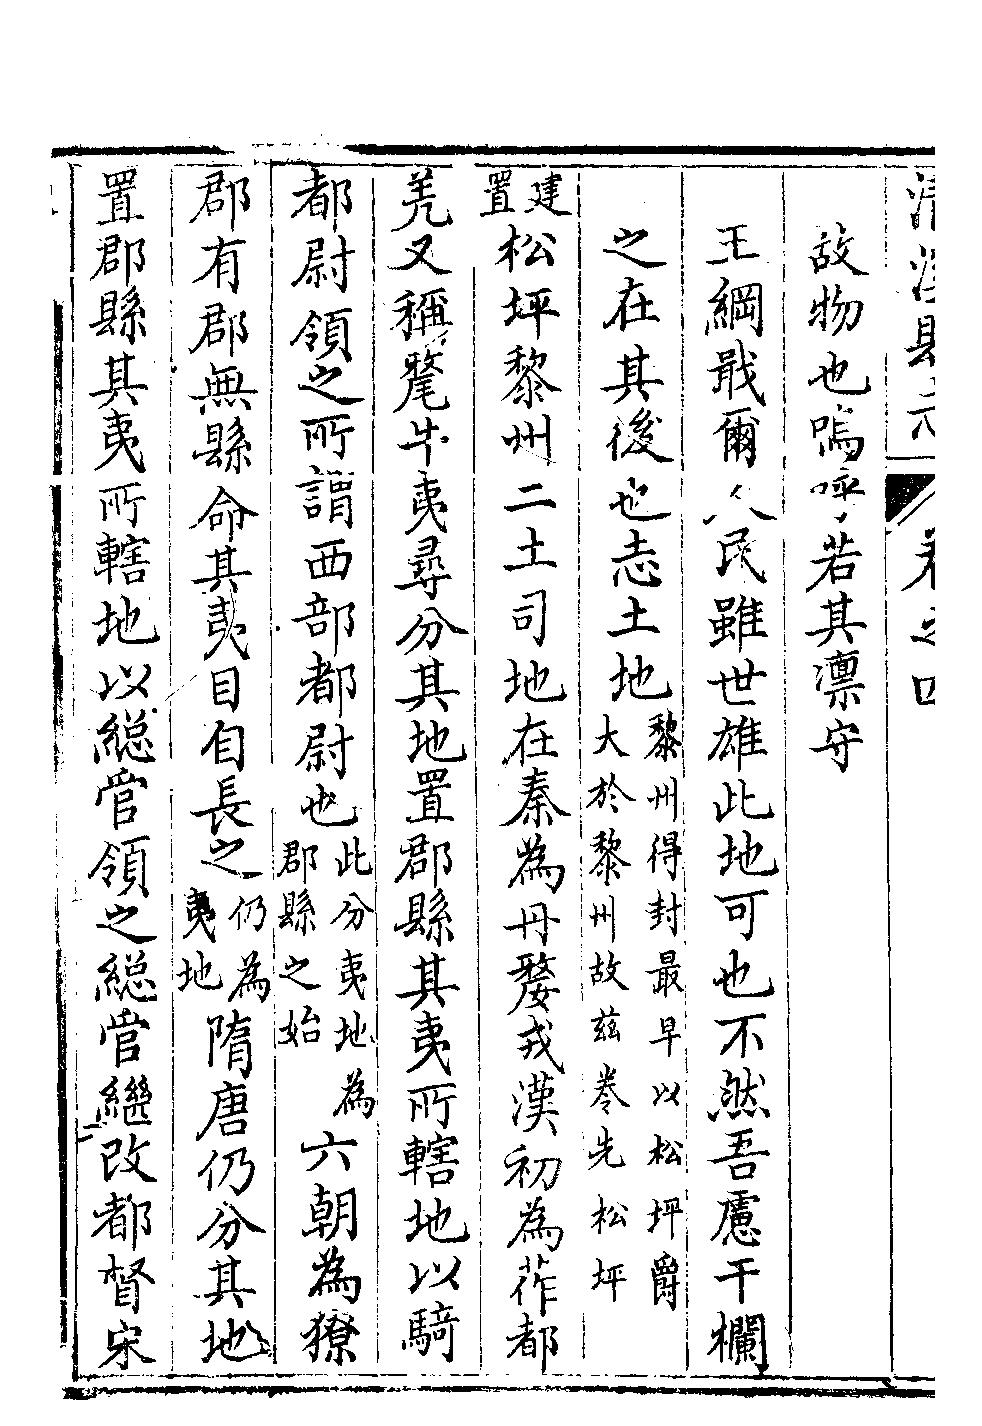 清溪縣志 卷之四
故物也嗚呼若其凛守
王綱戢爾人民雖世雄此地可也不然吾慮干欄
之在其後也志土地黎州得封最早以松坪爵大於黎州故兹卷先松坪
建置松坪黎州二土司地在秦為丹嫠戎漢初為莋都
羌又稱氂牛夷尋分其地置郡縣其夷所轄地以騎
都尉領之所謂西部都尉也此分夷地為郡縣之始六朝為獠
郡有郡無縣命其夷目自長之仍為夷地隋唐仍分其地
置郡縣其夷所轄地以総管領之総管繼改都督宋